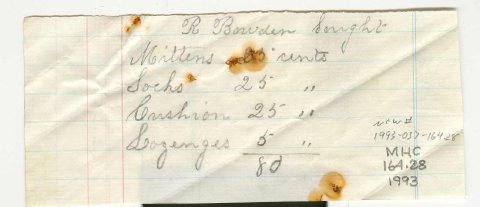 R Bowden bought
Mittens 25 cents
Socks 25 "
Cushion 25 "
Lozenges 5 "
80
new #
1993-037-164.28
MHC
164.28
1993